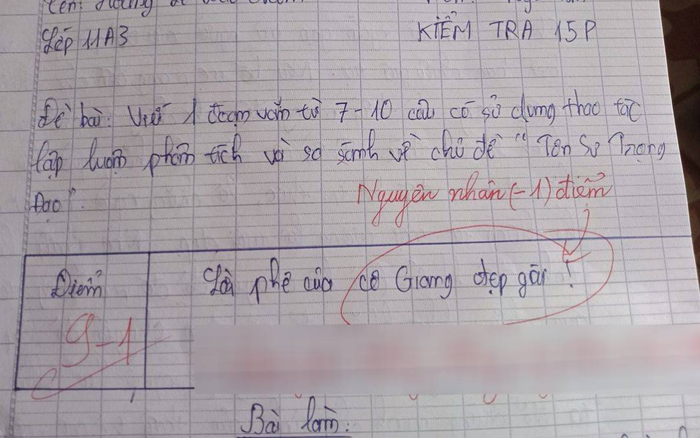 Lớp 11A3
KIỂM TRA 15P
Đề bài: Viết 1 đoạn văn từ 7-10 câu có sử dụng thao tác
lập luận phân tích và so sánh về chủ đề "Tôn Sư Trọng
Đạo".
Nguyên nhân (-1) điểm
Điểm
Lời phê của cô Giang đẹp gái!
9-1
Bài làm: